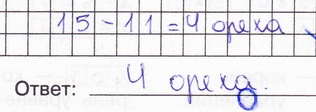 15-11=4 ореха
Ответ: 4 ореха.